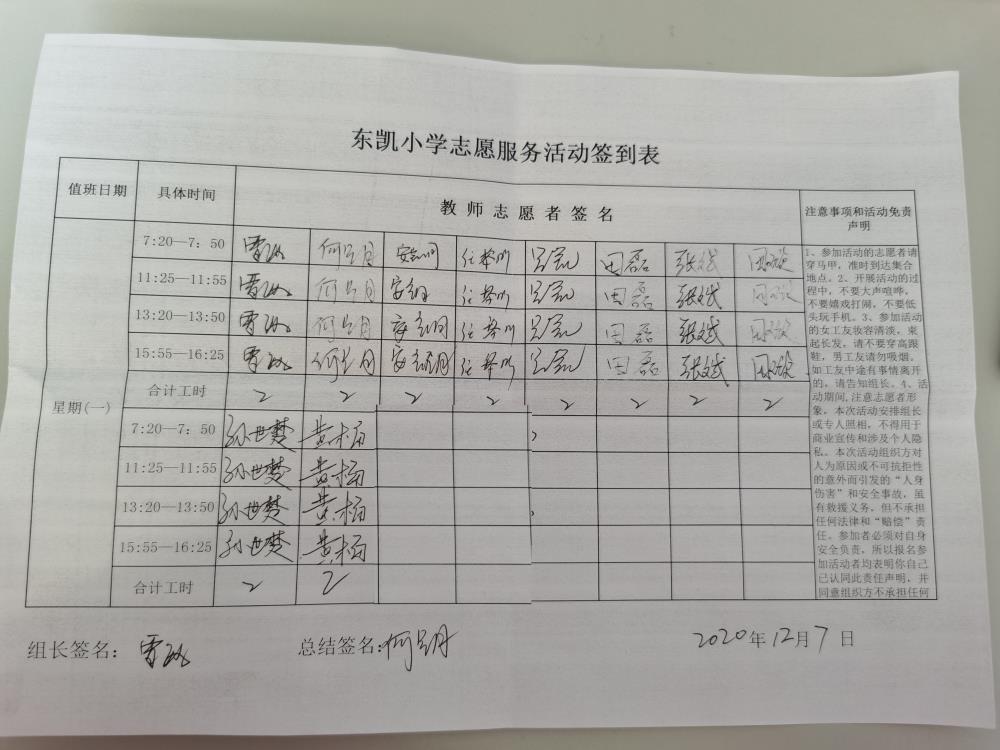 东凯小学志愿服务活动签到表
值班日期 具体时间 教师志愿者签名 注意事项和活动免责声明
星期(一)
7:20—7：50 田磊 张斌
11:25—11:55 田磊 张斌
13:20—13:50 田磊 张斌
15:55—16:25 田磊 张斌
合计工时 2 2 2 2 2 2 2 2
7:20—7：50 孙世楚 黄杨
11:25—11:55 孙世楚 黄杨
13:20—13:50 孙世楚 黄杨
15:55—16:25 孙世楚 黄杨
合计工时 2 2
1、参加活动的志愿者请
穿马甲，准时到达集合
地点。2、开展活动的过
程中，不要大声喧哗，
不要嬉戏打闹，不要低
头玩手机。3、参加活动
的女工友妆容清淡，束
起长发，请不要穿高跟
鞋，男工友请勿吸烟。
如工友中途有事情离开
的，请告知组长。4、活
动期间,注意志愿者形
象，本次活动安排组长
或专人照相，不得用于
商业宣传和涉及个人隐
私。本次活动组织方对
人为原因或不可抗拒性
的意外而引发的“人身
伤害”和安全事故，虽
有救援义务，但不承担
任何法律和“赔偿”责
任。参加者必须对自身
安全负责，所以报名参
加活动者均表明你自己
已认同此责任声明，并
同意组织方不承担任何
组长签名： 总结签名: 2020年12月7日